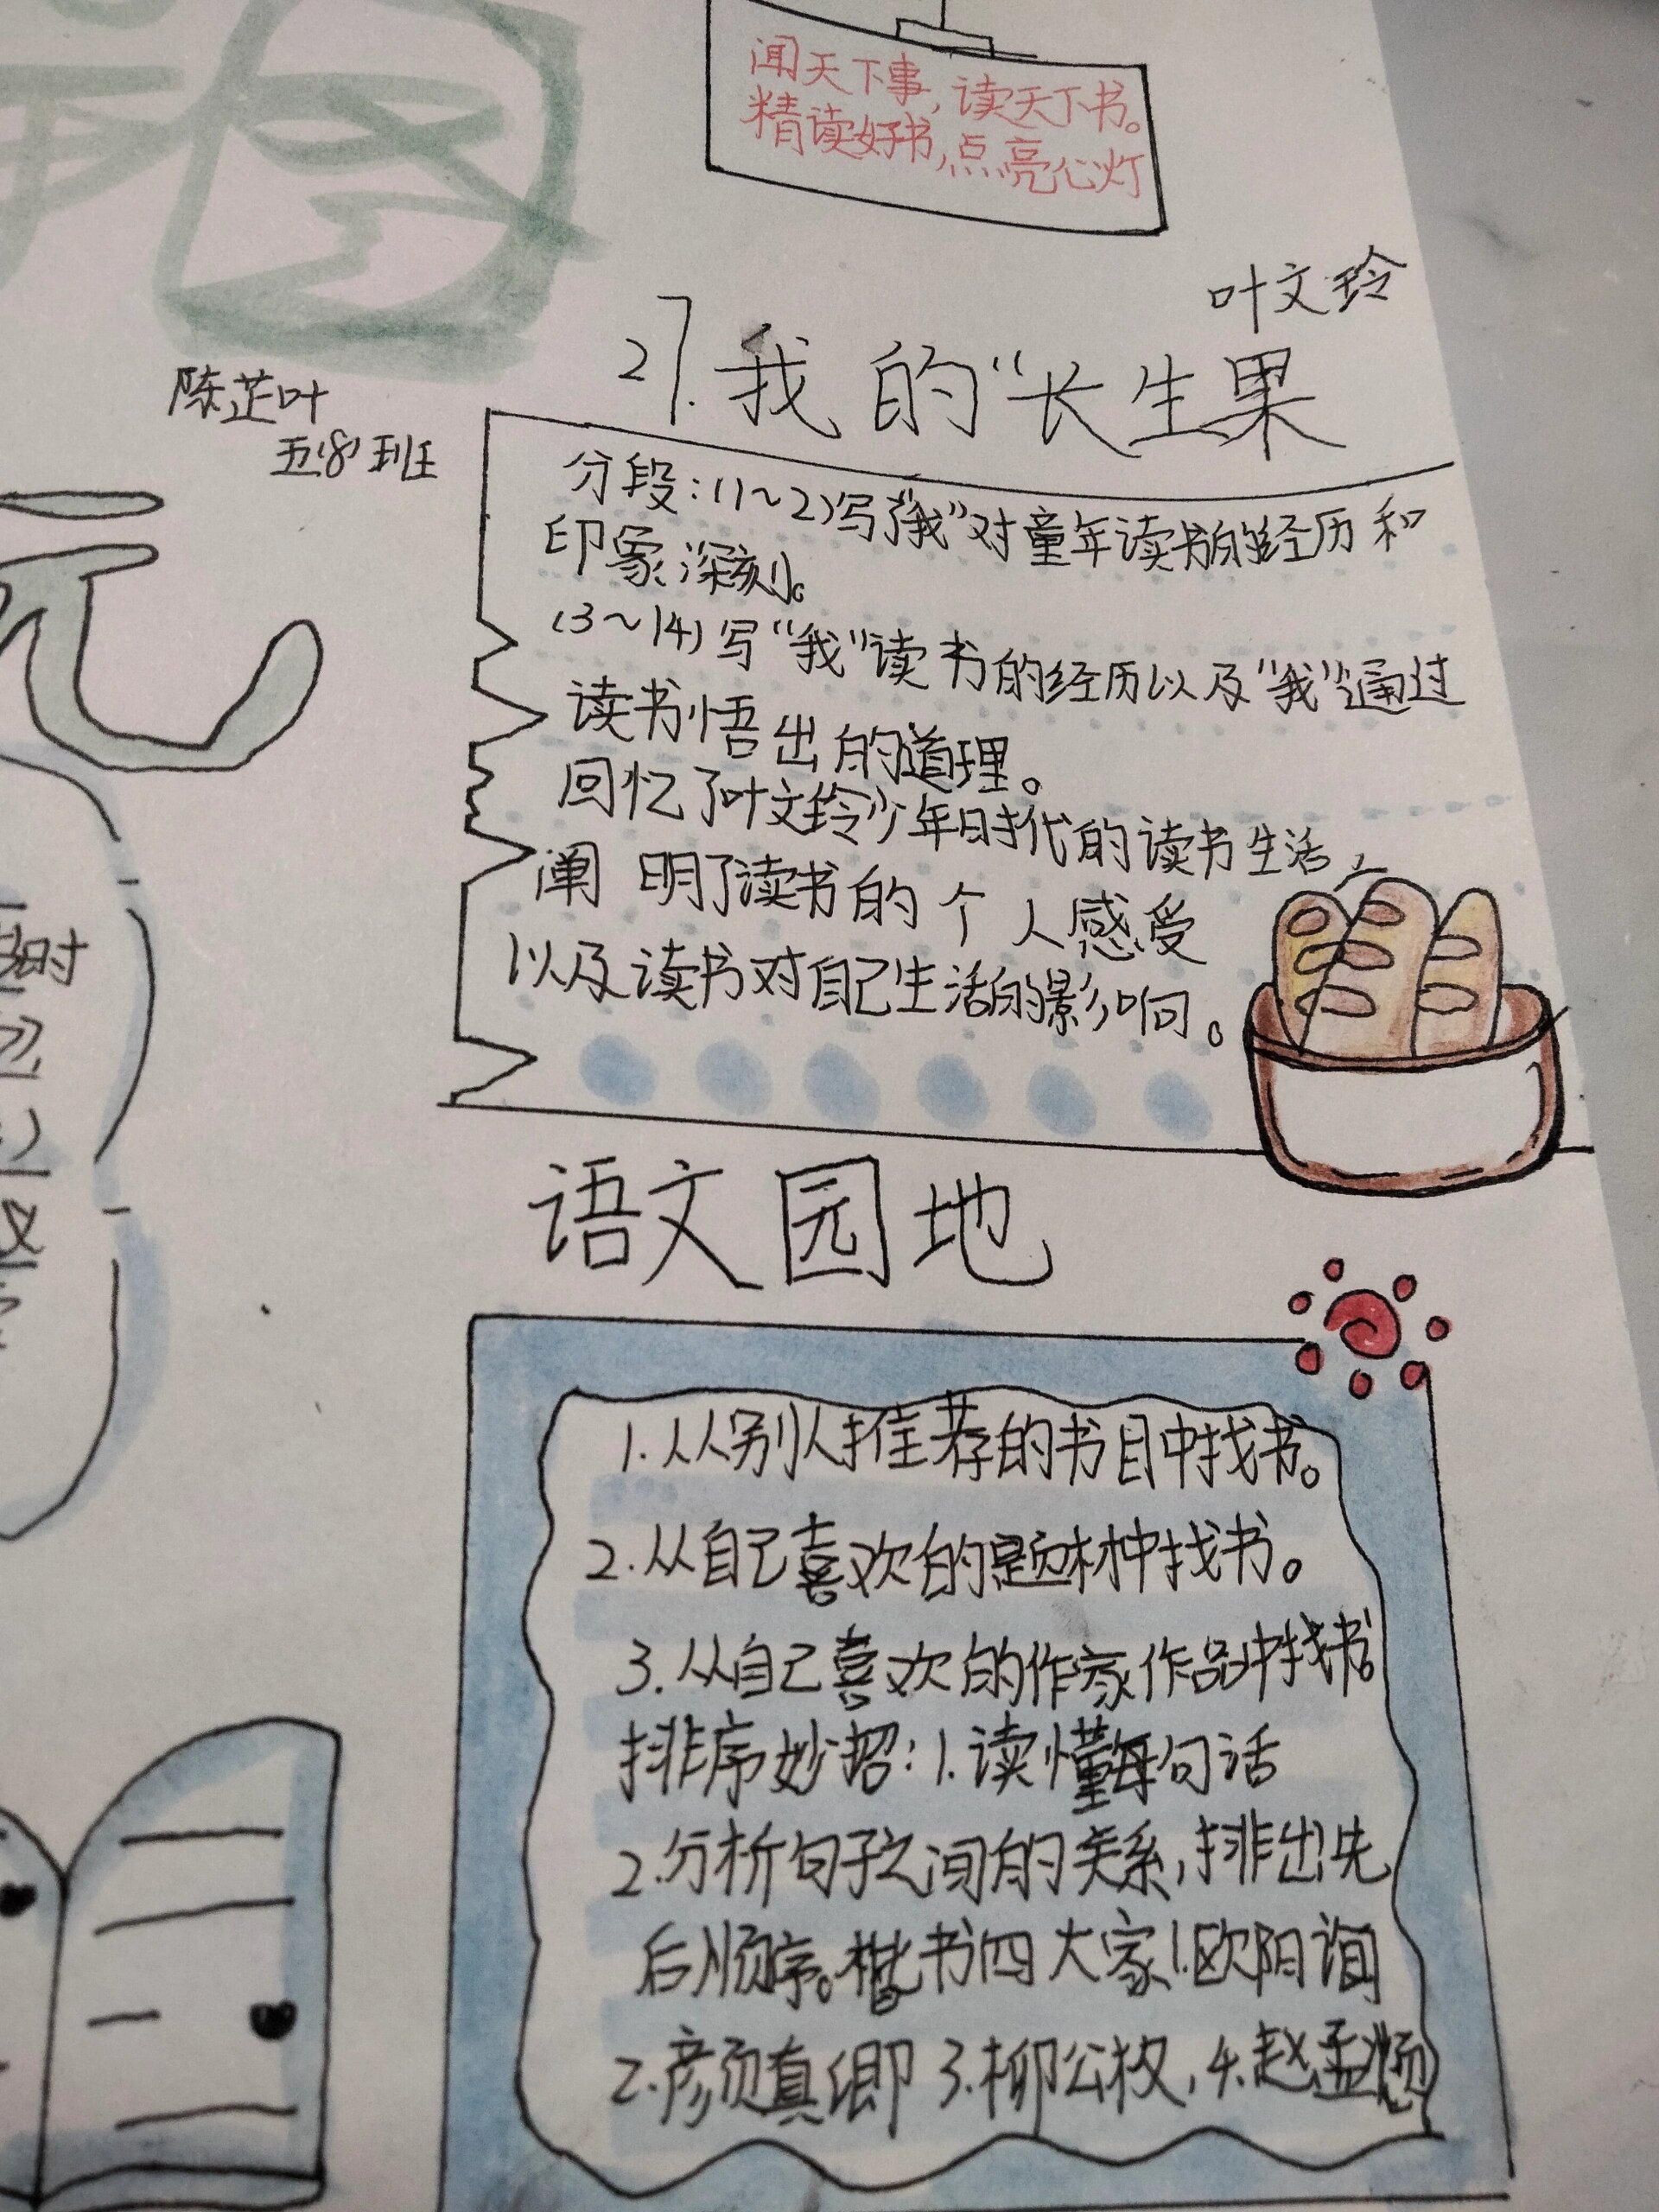 闻天下事，读天下书。
精读好书，点亮心灯
叶文玲
27.我的“长生果
陈芷叶
五(8)班
分段：(1～2)写了“我”对童年读书的经历和
印象深刻。
(3～14)写“我”读书的经历以及“我”通过
读书悟出的道理。
回忆了叶文玲少年时代的读书生活，
阐明了读书的个人感受
以及读书对自己生活的影响。
语文园地
1.从别人推荐的书目中找书。
2.从自己喜欢的题材中找书。
3.从自己喜欢的作家作品中找书。
排序妙招：1.读懂每句话
2.分析句子之间的关系，排出先
后顺序。楷书四大家1.欧阳询
2.颜真卿 3.柳公权，4.赵孟